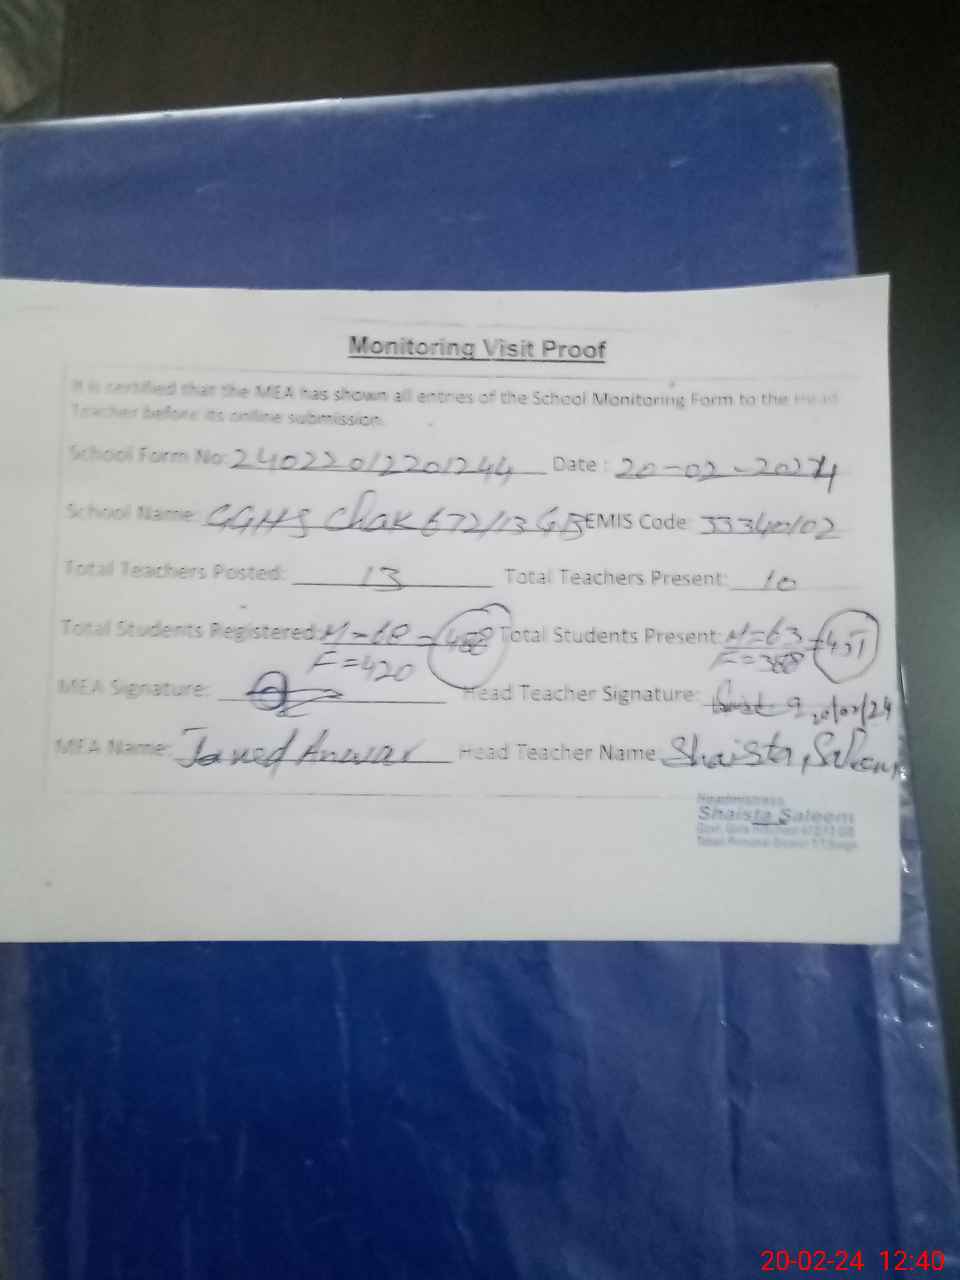 Monitoring Visit Proof
It is certified that the MEA has shown all entries of the School Monitoring Form to the Head
Teacher before its online submission.
School Form No: 24022012201244 Date: 20-02-2024
School Name: GGHS Chak 672/13 GB EMIS Code: 33340102
Total Teachers Posted: 13 Total Teachers Present: 10
Total Students Registered: M=68 =488 Total Students Present: M=63 =451
F=420 F=388
MEA Signature: Head Teacher Signature: 20/02/24
MEA Name: Javed Anwar Head Teacher Name Shaista Saleem
Headmistress
Shaista Saleem
Govt. Girls High School 672/13 GB
20-02-24 12:40